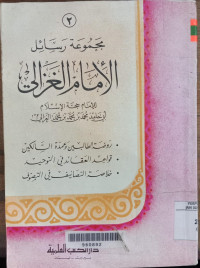 ٢
مجموعة رسائل
الإمام الغزالي
للإمام حجة الإسلام
أبي حامد محمد بن محمد بن محمد الغزالي
روضة الطالبين وعمدة السالكين
قواعد العقائد في التوحيد
خلاصة التصانيف في التصوف
دار الكتب العلمية